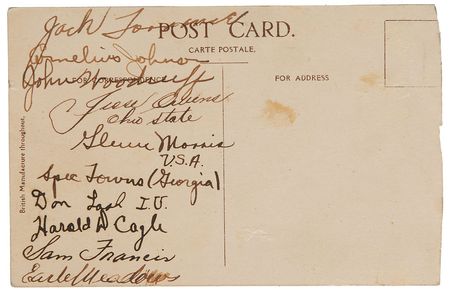 Jack Torrance
POST CARD.
CARTE POSTALE.
Cornelius Johnson
FOR CORRESPONDENCE
FOR ADDRESS
John Woodruff
Jesse Owens
Ohio State
Glenn Morris
U.S.A.
Spec Towns (Georgia)
Don Lash I.U.
Harold D Cagle
Sam Francis
Earle Meadows
British Manufacture throughout.